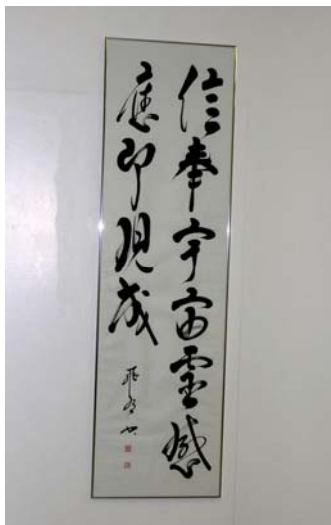 信奉宇宙靈感
應即現成